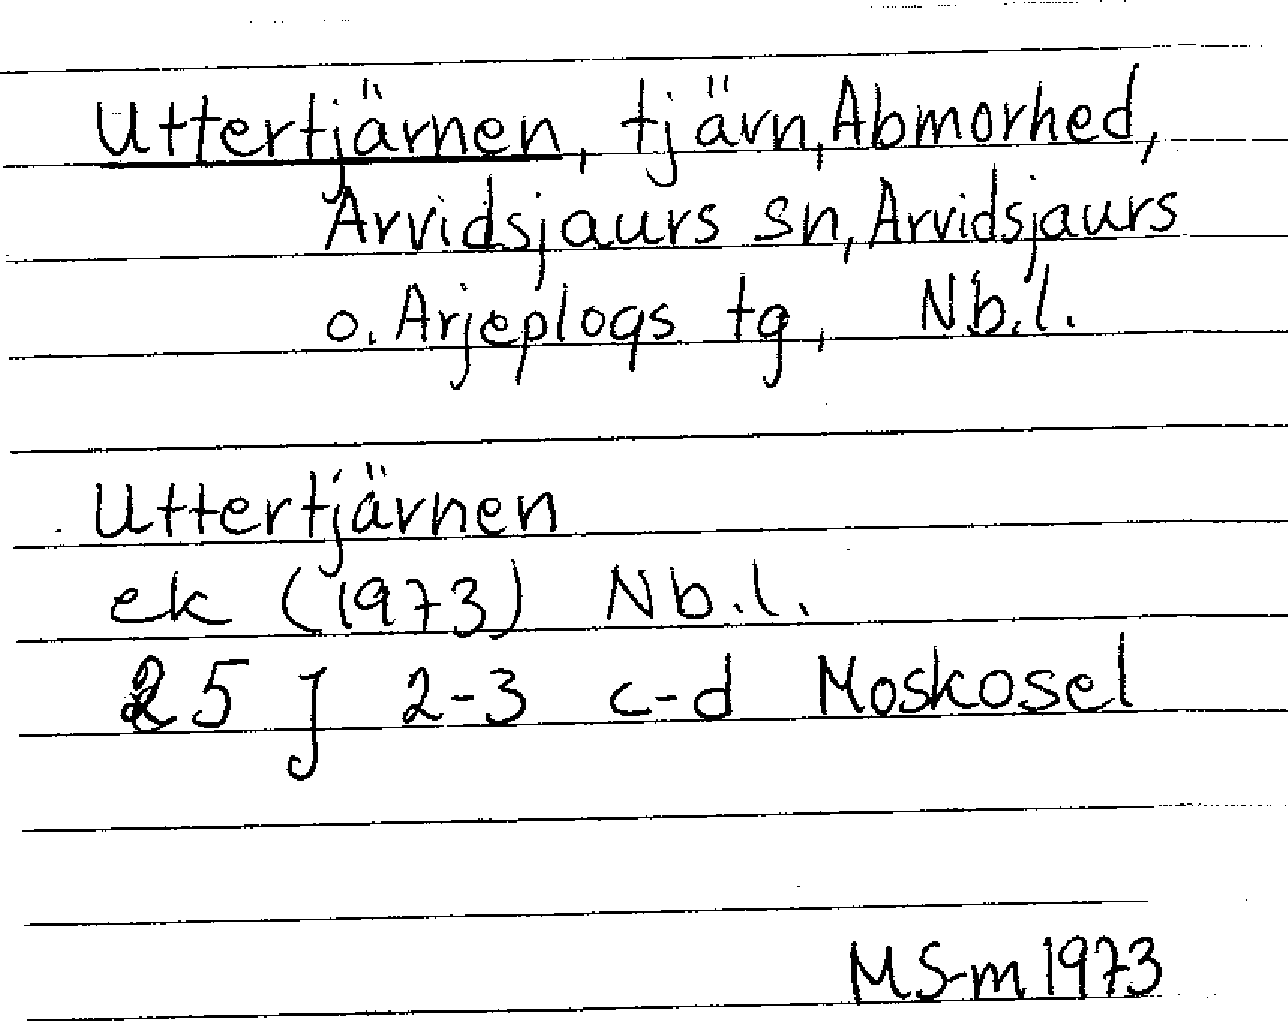 Uttertjärnen, tjärn, Abmorhed,
Arvidsjaurs sn, Arvidsjaurs
o. Arjeplogs tg, Nb.l.
Uttertjärnen
ek (1973) Nb.l.
25 J 2-3 c-d Moskosel
MS-m 1973